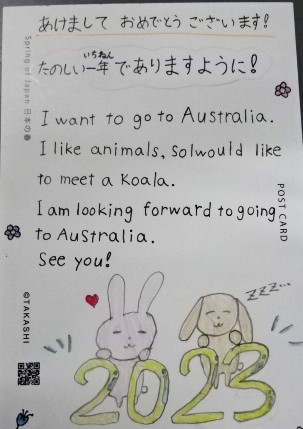 あけまして おめでとう ございます!
たのしい一年でありますように!
いちねん
I want to go to Australia.
I like animals, so I would like
to meet a Koala.
I am looking forward to going
to Australia.
See you!
zzz...
2023
Spring of Japan 日本の春
POST CARD
©TAKASHI